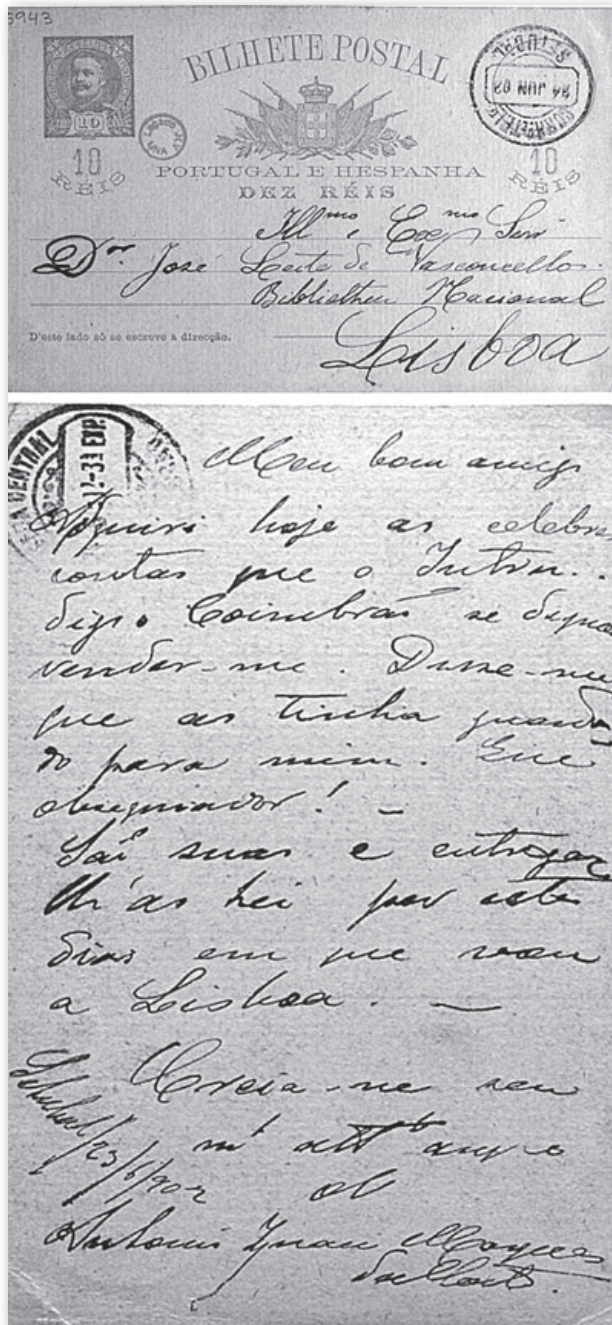 5943
BILHETE POSTAL
10
10
RÉIS
10
RÉIS
PORTUGAL E HESPANHA
DEZ RÉIS
SETUBAL
24 JUN 02
Ill.mo e Ex.mo Snr
D.or José Leite de Vasconcellos
Bibliotheca Nacional
Lisboa
D'esse lado só se escreve a direcção.
CENTRAL
Meu bom amigo
Adquiri hoje as celebres
contas que o
Coimbra se dignou
vender-me. Disse-me
que as tinha guarda-
do para mim. Que
obsequiador! —
São suas e entregar
lh'as hei por estes
dias em que vou
a Lisboa. —
Creia-me seu
m.to att.o amigo
Setubal/23/6/902
Antonio Ignacio Marques
da Costa.